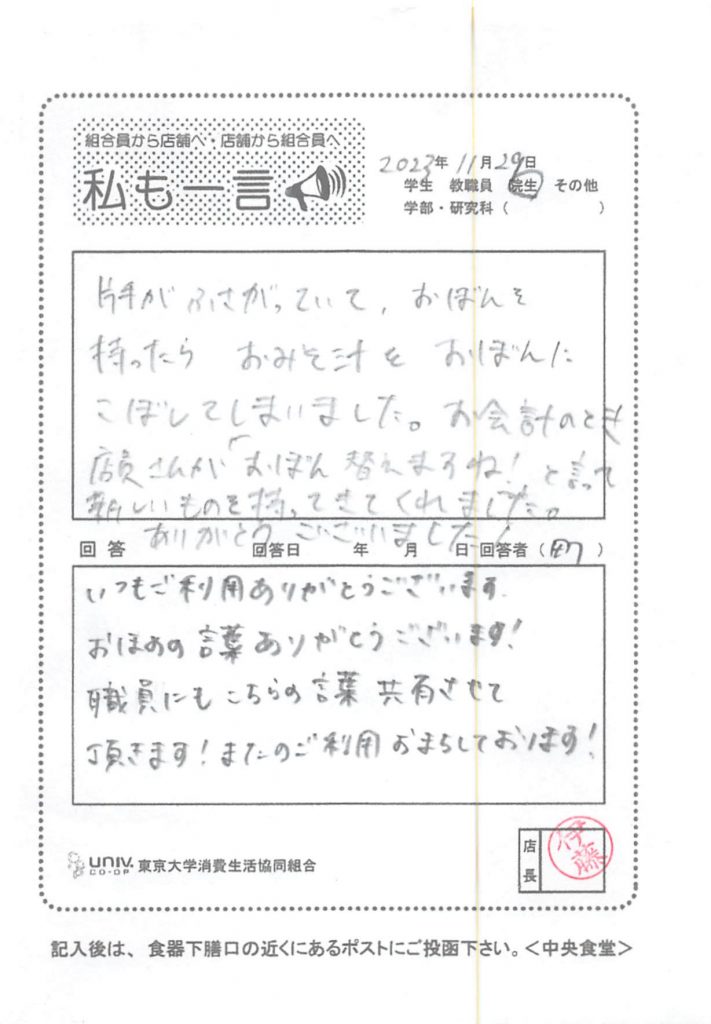 組合員から店舗へ・店舗から組合員へ
私も一言
2023年11月29日
学生 教職員 院生 その他
学部・研究科( )
片手がふさがっていて、おぼんを
持ったら おみそ汁を おぼんに
こぼしてしまいました。お会計のとき
店員さんが「おぼん替えますね!と言って
新しいものを持ってきてくれました。
ありがとうございました!
回答 回答日 年 月 日 回答者(町)
いつもご利用ありがとうございます.
おほめの言葉ありがとうございます!
職員にもこちらの言葉 共有させて
頂きます!またのご利用 おまちしております!
UNIV. CO-OP 東京大学消費生活協同組合
店長
伊藤
記入後は、食器下膳口の近くにあるポストにご投函下さい。<中央食堂>